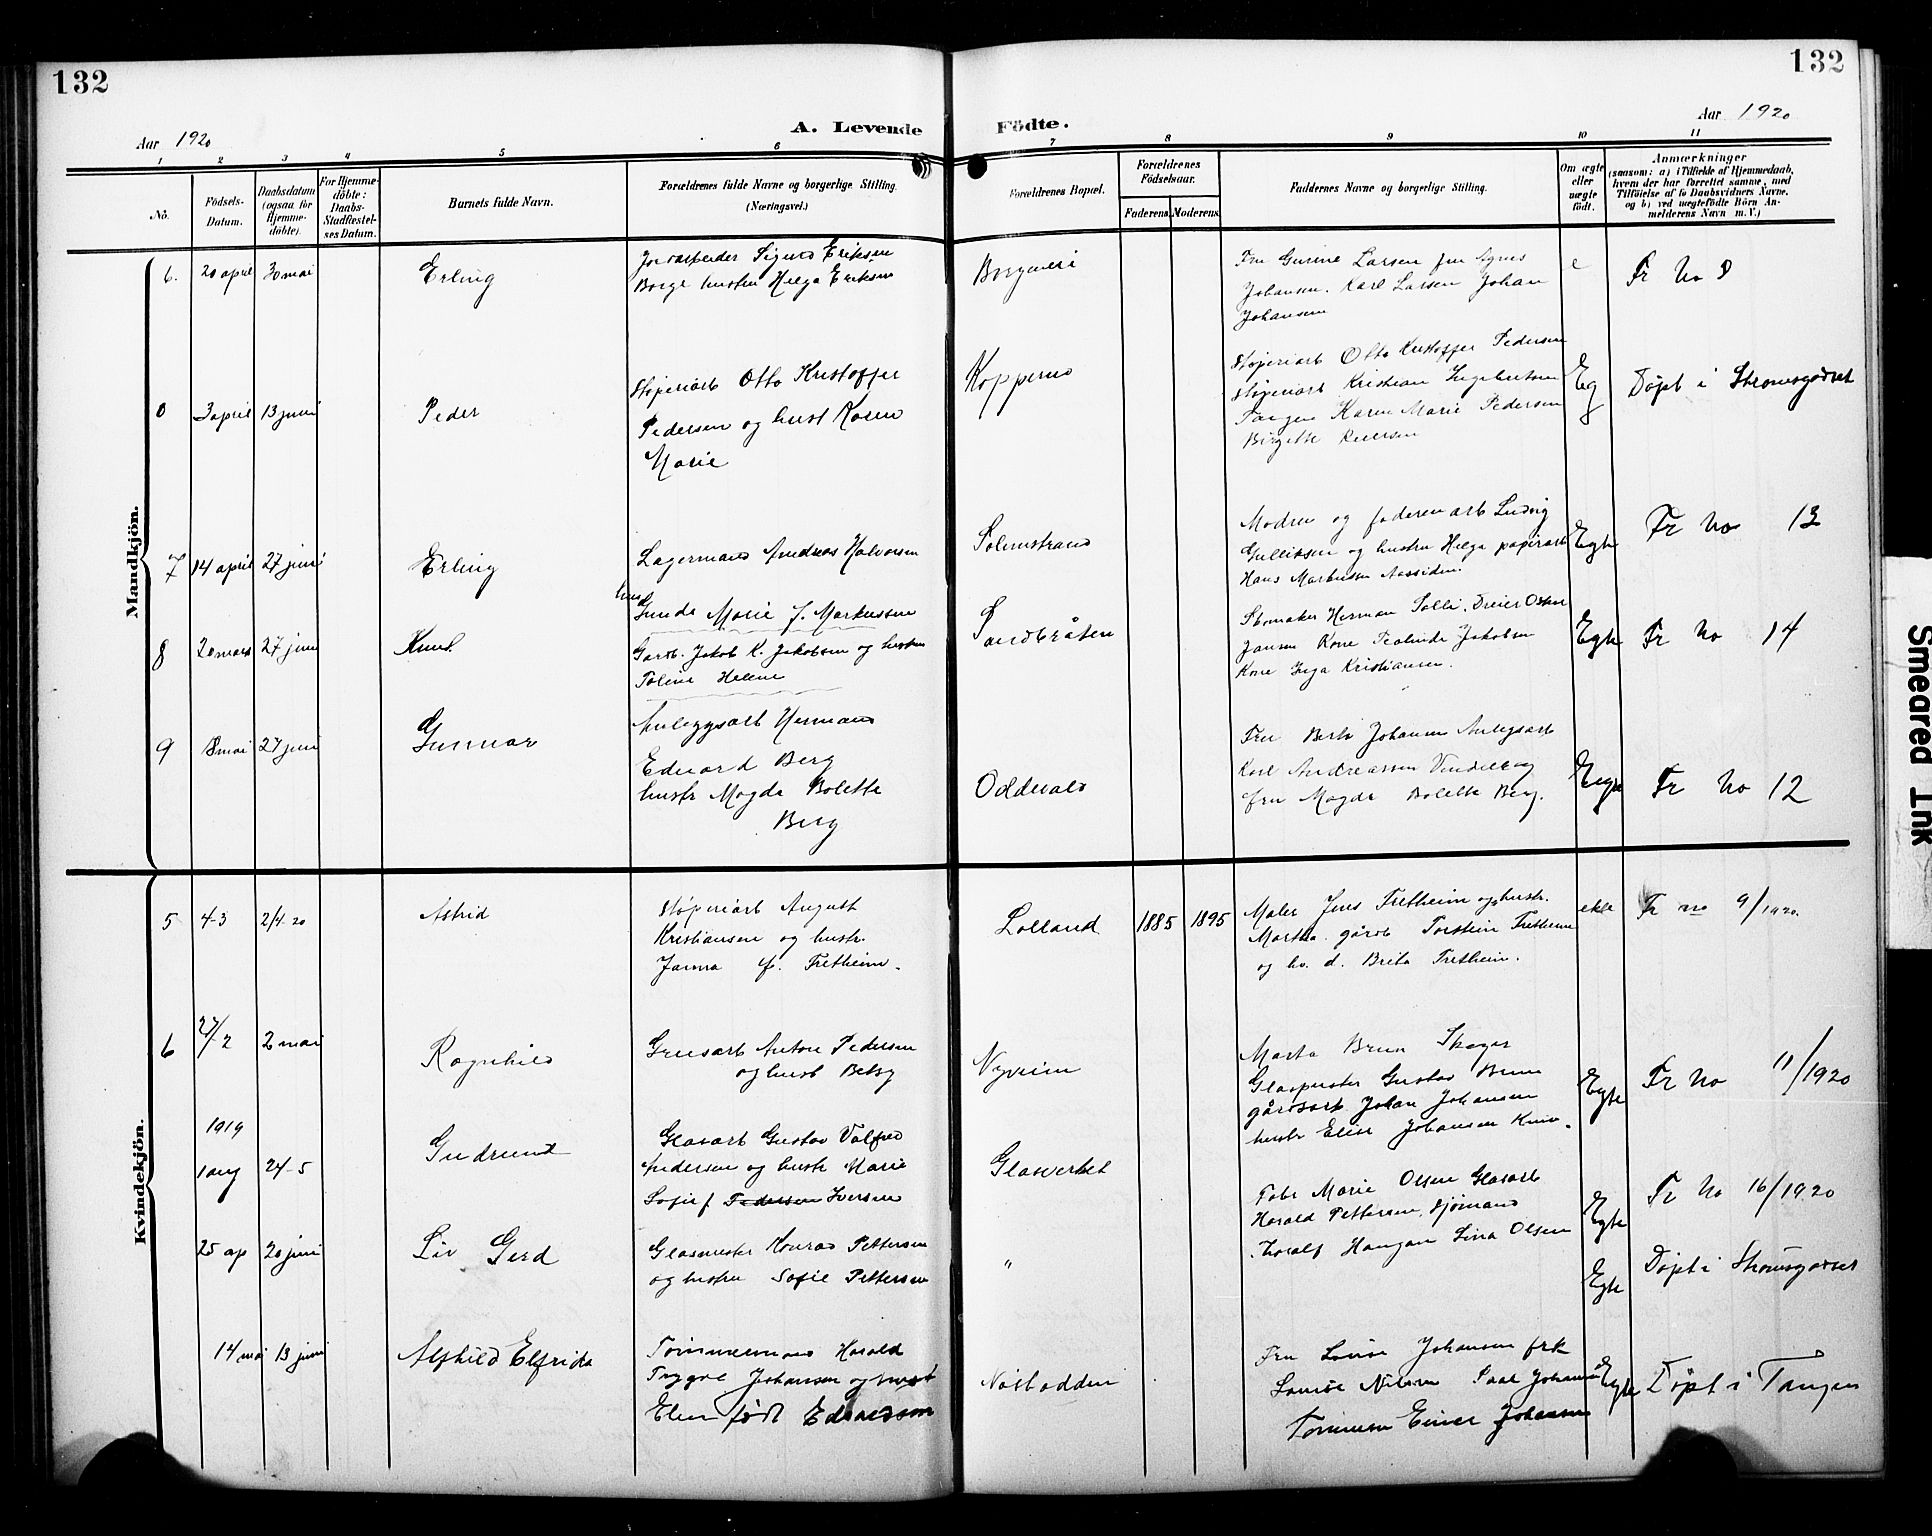 132
132
A. Levende Födte.
Aar 1920
Aar 1920
1 2 3 4 5 6 7 8 9 10 11
No.
Födsels-Datum.
Daabsdatum (ogsaa for Hjemme-döbte).
For Hjemme-döbte: Daabs-Stadfæstel-ses Datum.
Barnets fulde Navn.
Forældrenes fulde Navne og borgerlige Stilling. (Næringsvei.)
Forældrenes Bopæl.
Forældrenes Födselsaar.
Faderens. Moderens.
Faddernes Navne og borgerlige Stilling.
Om ægte eller uægte födt.
Anmærkninger
(saasom: a) i Tilfælde af Hjemmedaab, hvem der har forrettet samme, med Tilföielse af to Daabsvidners Navne, og b) ved uægtefödte Börn An-melderens Navn m. V.)
Mandkjön.
6. 20 april 30 mai Erling
Sigurd Eriksen
Borge hustru Helga Eriksen
Fru Gurine Larsen fru Agnes
Johansen. Karl Larsen Johan
Johansen
e
Fr No 8
0 3 april 13 juni Peder
Støperiarb Otto Kristoffer
Pedersen og hust Karen
Marie
Koppernd
Støperiarb Otto Kristoffer Pedersen
Støperiarb Kristian Ingebretsen
Tangen Karen Marie Pedersen
Birgitte
Eg
Døpt i Strømsgodset
7 14 april 27 juni Erling
Lagermand Andreas Halvorsen
hus Gunda Marie f. Markussen
Solumstrand
Modren og faderen arb Ludvig
Gulliksen og hustru Helga papirarb
Hans Markussen Aassiden.
Egte
Fr No 13
8 20 mars 27 juni Knud
Garb. Jakob K. Jakobsen og hustru
Toline Helene
Sandbråten
Skomaker Herman Solli. Dreier Oskar
Jansen Kone Jakobsen
Kone Inga Kristiansen.
Egte
Fr No 14
9 8 mai 27 juni Gunnar
Anleggsarb Herman
Edvard Berg
hustr Magda Bolette
Berg
Oddevald
Fru Berta Johansen Anlegsarb
Karl Andreassen
fru Magda Bolette Berg.
Fr No 12
Kvindekjön.
5 4-3 2/4-20 Astrid
Støperiarb August
Kristiansen og hustr.
Janna f. Fretheim.
Lolland 1885 1895
Maler Jens Fretheim og hustr.
Martha. gårdb Torstein Fretheim
og hs. d. Brita Fretheim.
ekte
Fr no 9/1920.
6 27/2 2 mai Ragnhild
Grusarb Anton Pedersen
og hust Betsy
Nyveien
Marta Brun Skoger
Glaspuster Gustav Brun
gårdsarb Johan Johansen
hustr Elise Johansen
Egte
Fr No 11/1920
1919
1 aug 24-5 Gudrund
Glasarb Gustav Valfred
Andersen og hustr Marie
Sofie f Pedersen Iversen
Glasverket
Fabr Marie Olsen Glasarb
Harald Pettersen, Sjømand
Thoralf Haugan Lina Olsen
Egte
Fr No 16/1920
25 ap 20 juni Liv Gerd
Glasmester Konrad Pettersen
og hustru Sofie Pettersen
"
Egte
Døpt i Strømsgodset
14 mai 13 juni Alfhild Elfrida
Tømmermand Harald
Trygve Johansen og hust
Elen født Edvardsen
Nøstodden
Fru Lovise Johansen frk
Lovise Nilsen Paal Johansen
Einar Johansen
Egte
Døpt i Tangen
Smeared Ink